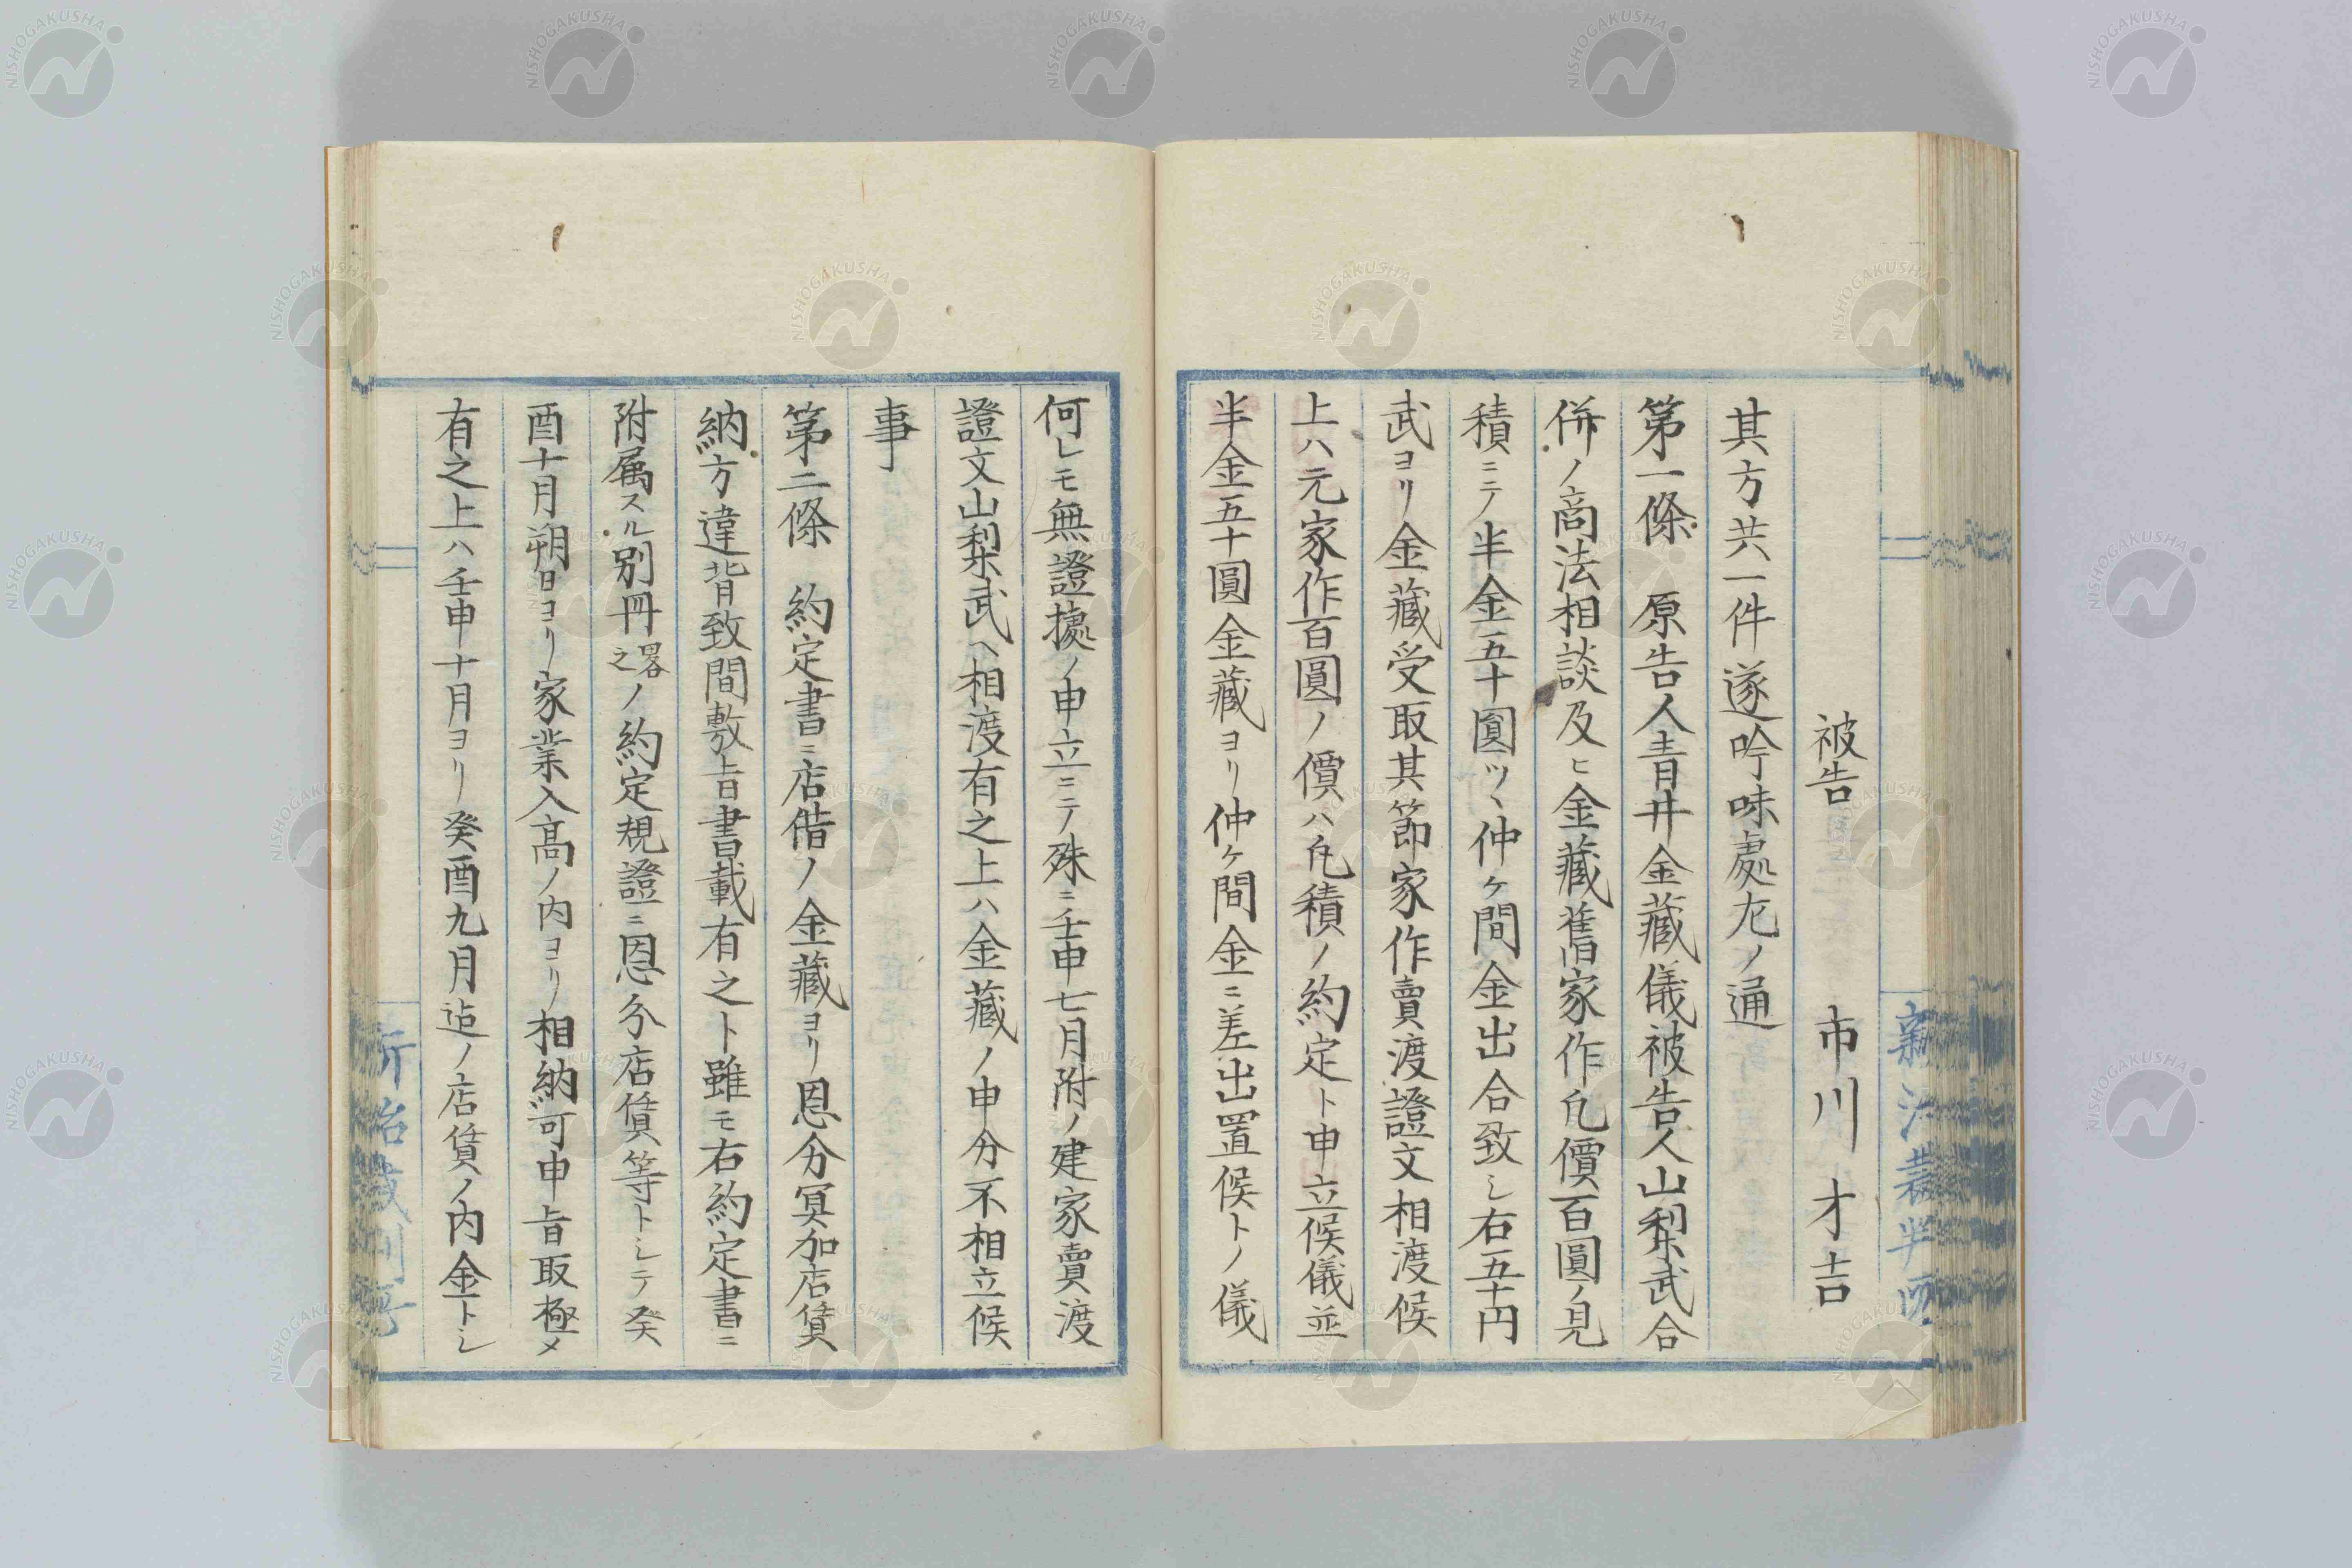 被告 市川才吉
其方共一件遂吟味處左ノ通
第一條 原告人青井金藏儀被告人山梨武合
併ノ商法相談及ヒ金藏舊家作凡價百圓ノ見
積ニテ半金五十圓ツヽ仲ケ間金出合致シ右五十円
武ヨリ金藏受取其節家作賣渡證文相渡候
上ハ元家作百圓ノ價ハ凡積ノ約定ト申立候儀並
半金五十圓金藏ヨリ仲ケ間金ニ差出置候トノ儀
何レモ無證據ノ申立ニテ殊ニ壬申七月附ノ建家賣渡
證文山梨武ヘ相渡有之上ハ金藏ノ申分不相立候
事
第二條 約定書ニ店借ノ金藏ヨリ恩分冥加店賃
納方違背致間敷旨書載有之ト雖モ右約定書ニ
附属スル別冊畧之ノ約定規證ニ恩分店賃等トシテ癸
酉十月朔日ヨリ家業入高ノ内ヨリ相納可申旨取極メ
有之上ハ壬申十月ヨリ癸酉九月迠ノ店賃ノ内金トシ
新治裁判所
NISHOGAKUSHA